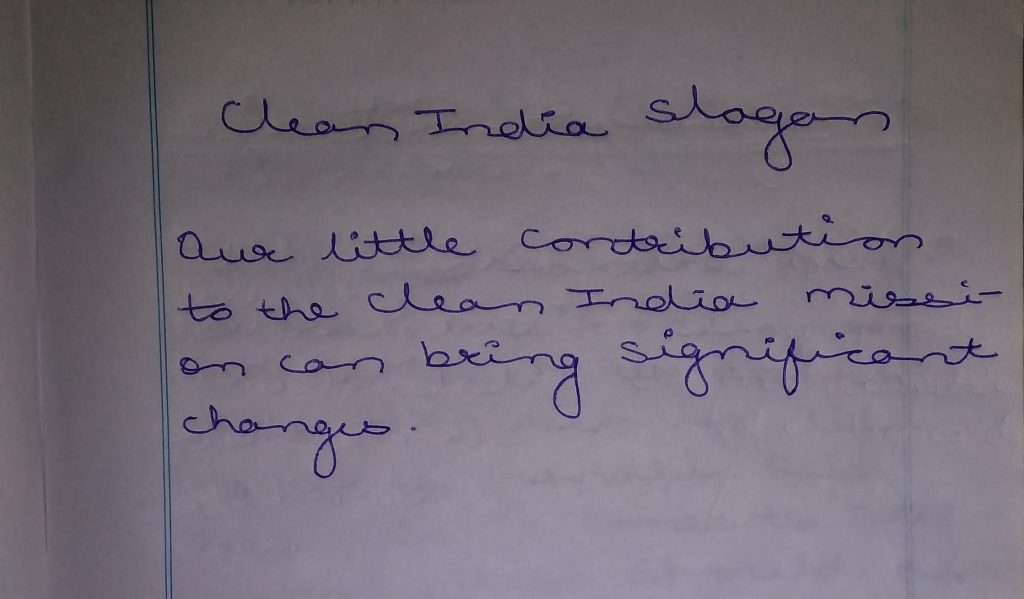 Clean India Slogan
Our little contribution
to the clean India missi-
on can bring significant
changes.